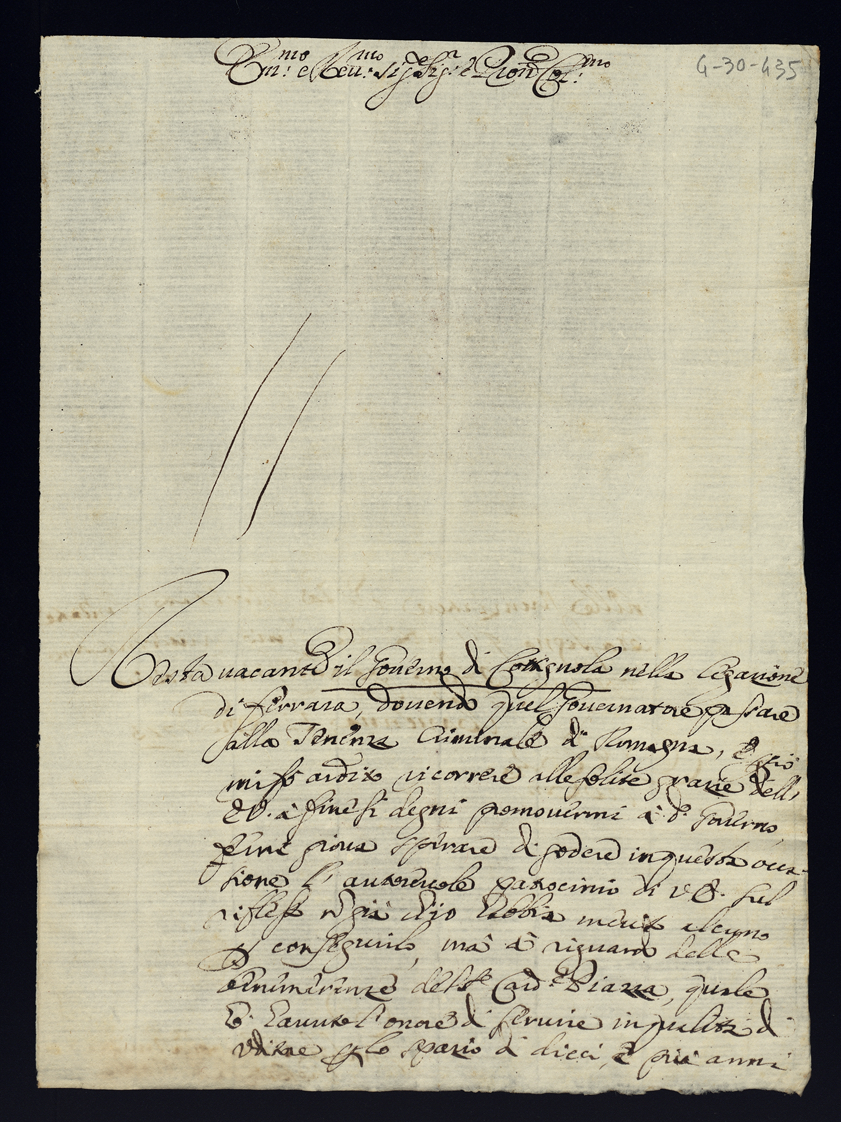 Em:mo e Reu:mo Sig:r Sig:r e Pron Col:mo
G-30-435
Resta uacante il Gouerno di Cotignola nella Legazione
di Ferrara, douendo quel Gouernatore passare
alla Tenenza Criminale di Romagna, e perciò
mi fò ardito ricorrere alle solite grazie dell'
E.V. à fine si degni promouermi à d.º Gouerno,
e mi gioua sperare di godere in questa occa-
sione l'autoreuole patrocinio di V.E. sul
riflesso nõ già ch'io habbia merito alcuno
p conseguirlo, mà à riguardo delle
del Card:e Piazza, quale
hò hauuto l'onore di seruire in qualità di
Vditore p lo spazio di dieci, e più anni